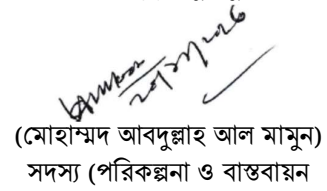 (মোহাম্মদ আবদুল্লাহ আল মামুন)
সদস্য (পরিকল্পনা ও বাস্তবায়ন